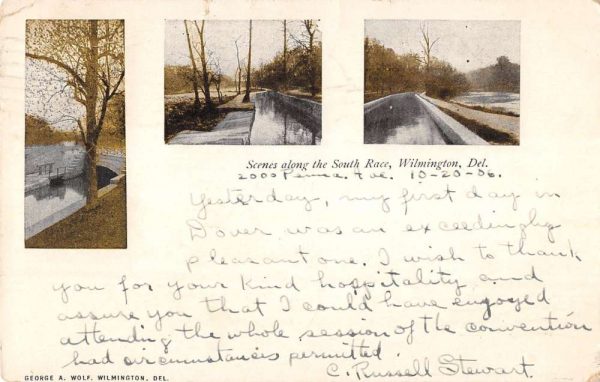 Scenes along the South Race, Wilmington, Del.
2000 Penna. Ave. 10-20-06.
Yesterday, my first day in
Dover was an exceedingly
pleasant one. I wish to thank
you for your kind hospitality and
assure you that I could have enjoyed
attending the whole session of the convention
had circumstances permitted.
C. Russell Stewart.
GEORGE A. WOLF, WILMINGTON, DEL.